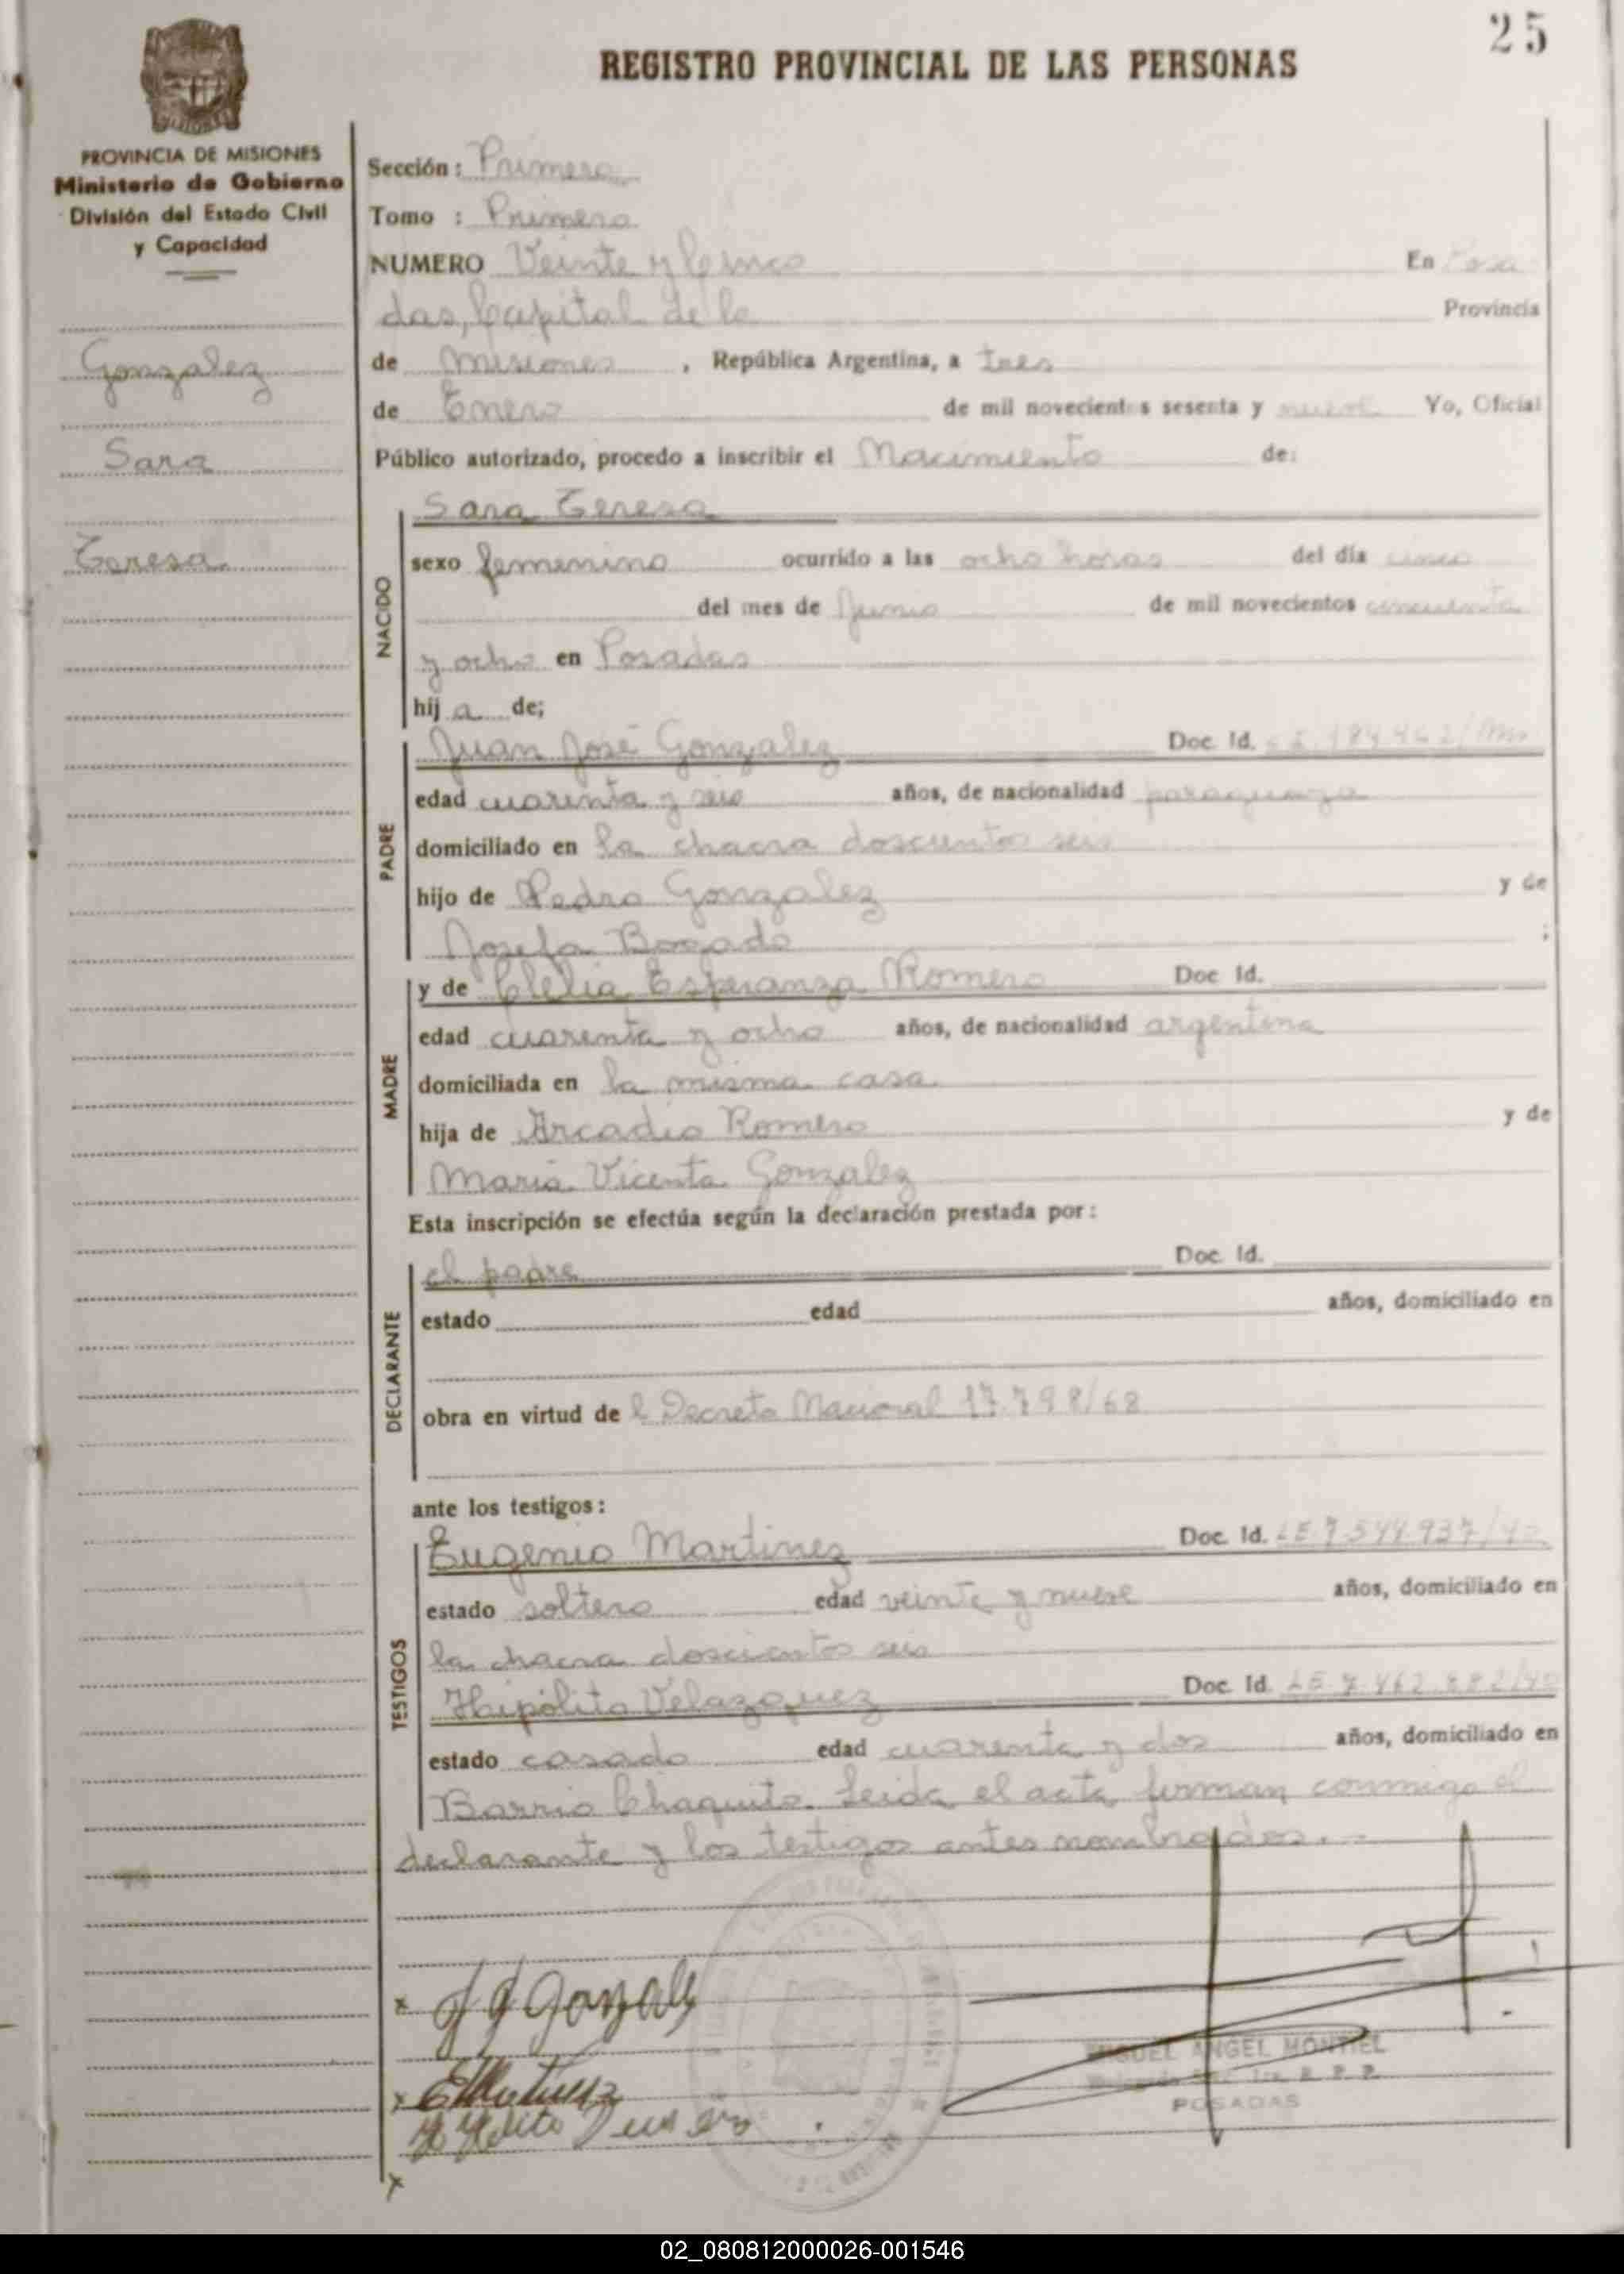 25
REGISTRO PROVINCIAL DE LAS PERSONAS
PROVINCIA DE MISIONES
Ministerio de Gobierno
División del Estado Civil
y Capacidad
Gonzalez
Sara
Teresa
Sección: Primera
Tomo : Primero
NUMERO Veinte y Cinco En Posa
das, Capital de la Provincia
de Misiones, República Argentina, a tres
de Enero de mil novecientos sesenta y nueve Yo, Oficial
Público autorizado, procedo a inscribir el Nacimiento de:
NACIDO
Sara Teresa
sexo femenino ocurrido a las ocho horas del día cinco
del mes de Junio de mil novecientos cincuenta
y ocho en Posadas
hija de;
PADRE
Juan José Gonzalez Doc. Id.
edad cuarenta y seis años, de nacionalidad paraguaya
domiciliado en la chacra doscientos seis
hijo de Pedro Gonzalez y de
Josefa Bogado ;
MADRE
y de Clelia Esperanza Romero Doc. Id.
edad cuarenta y ocho años, de nacionalidad argentina
domiciliada en la misma casa
hija de Arcadio Romero y de
Maria Vicenta Gonzalez
Esta inscripción se efectúa según la declaración prestada por:
DECLARANTE
el padre Doc. Id.
estado edad años, domiciliado en
obra en virtud del Decreto Nacional 17.798/68
ante los testigos:
TESTIGOS
Eugenio Martinez Doc. Id. LE 7.544.937/
estado soltero edad veinte y nueve años, domiciliado en
la chacra doscientos seis
Hipólito Velazquez Doc. Id. LE 7.462.882/
estado casado edad cuarenta y dos años, domiciliado en
Barrio Chaquito. Leida el acta firman conmigo el
declarante y los testigos antes nombrados.-
x J J Gonzale
x EMartinez
x
MIGUEL ANGEL MONTIEL
POSADAS
02_080812000026-001546